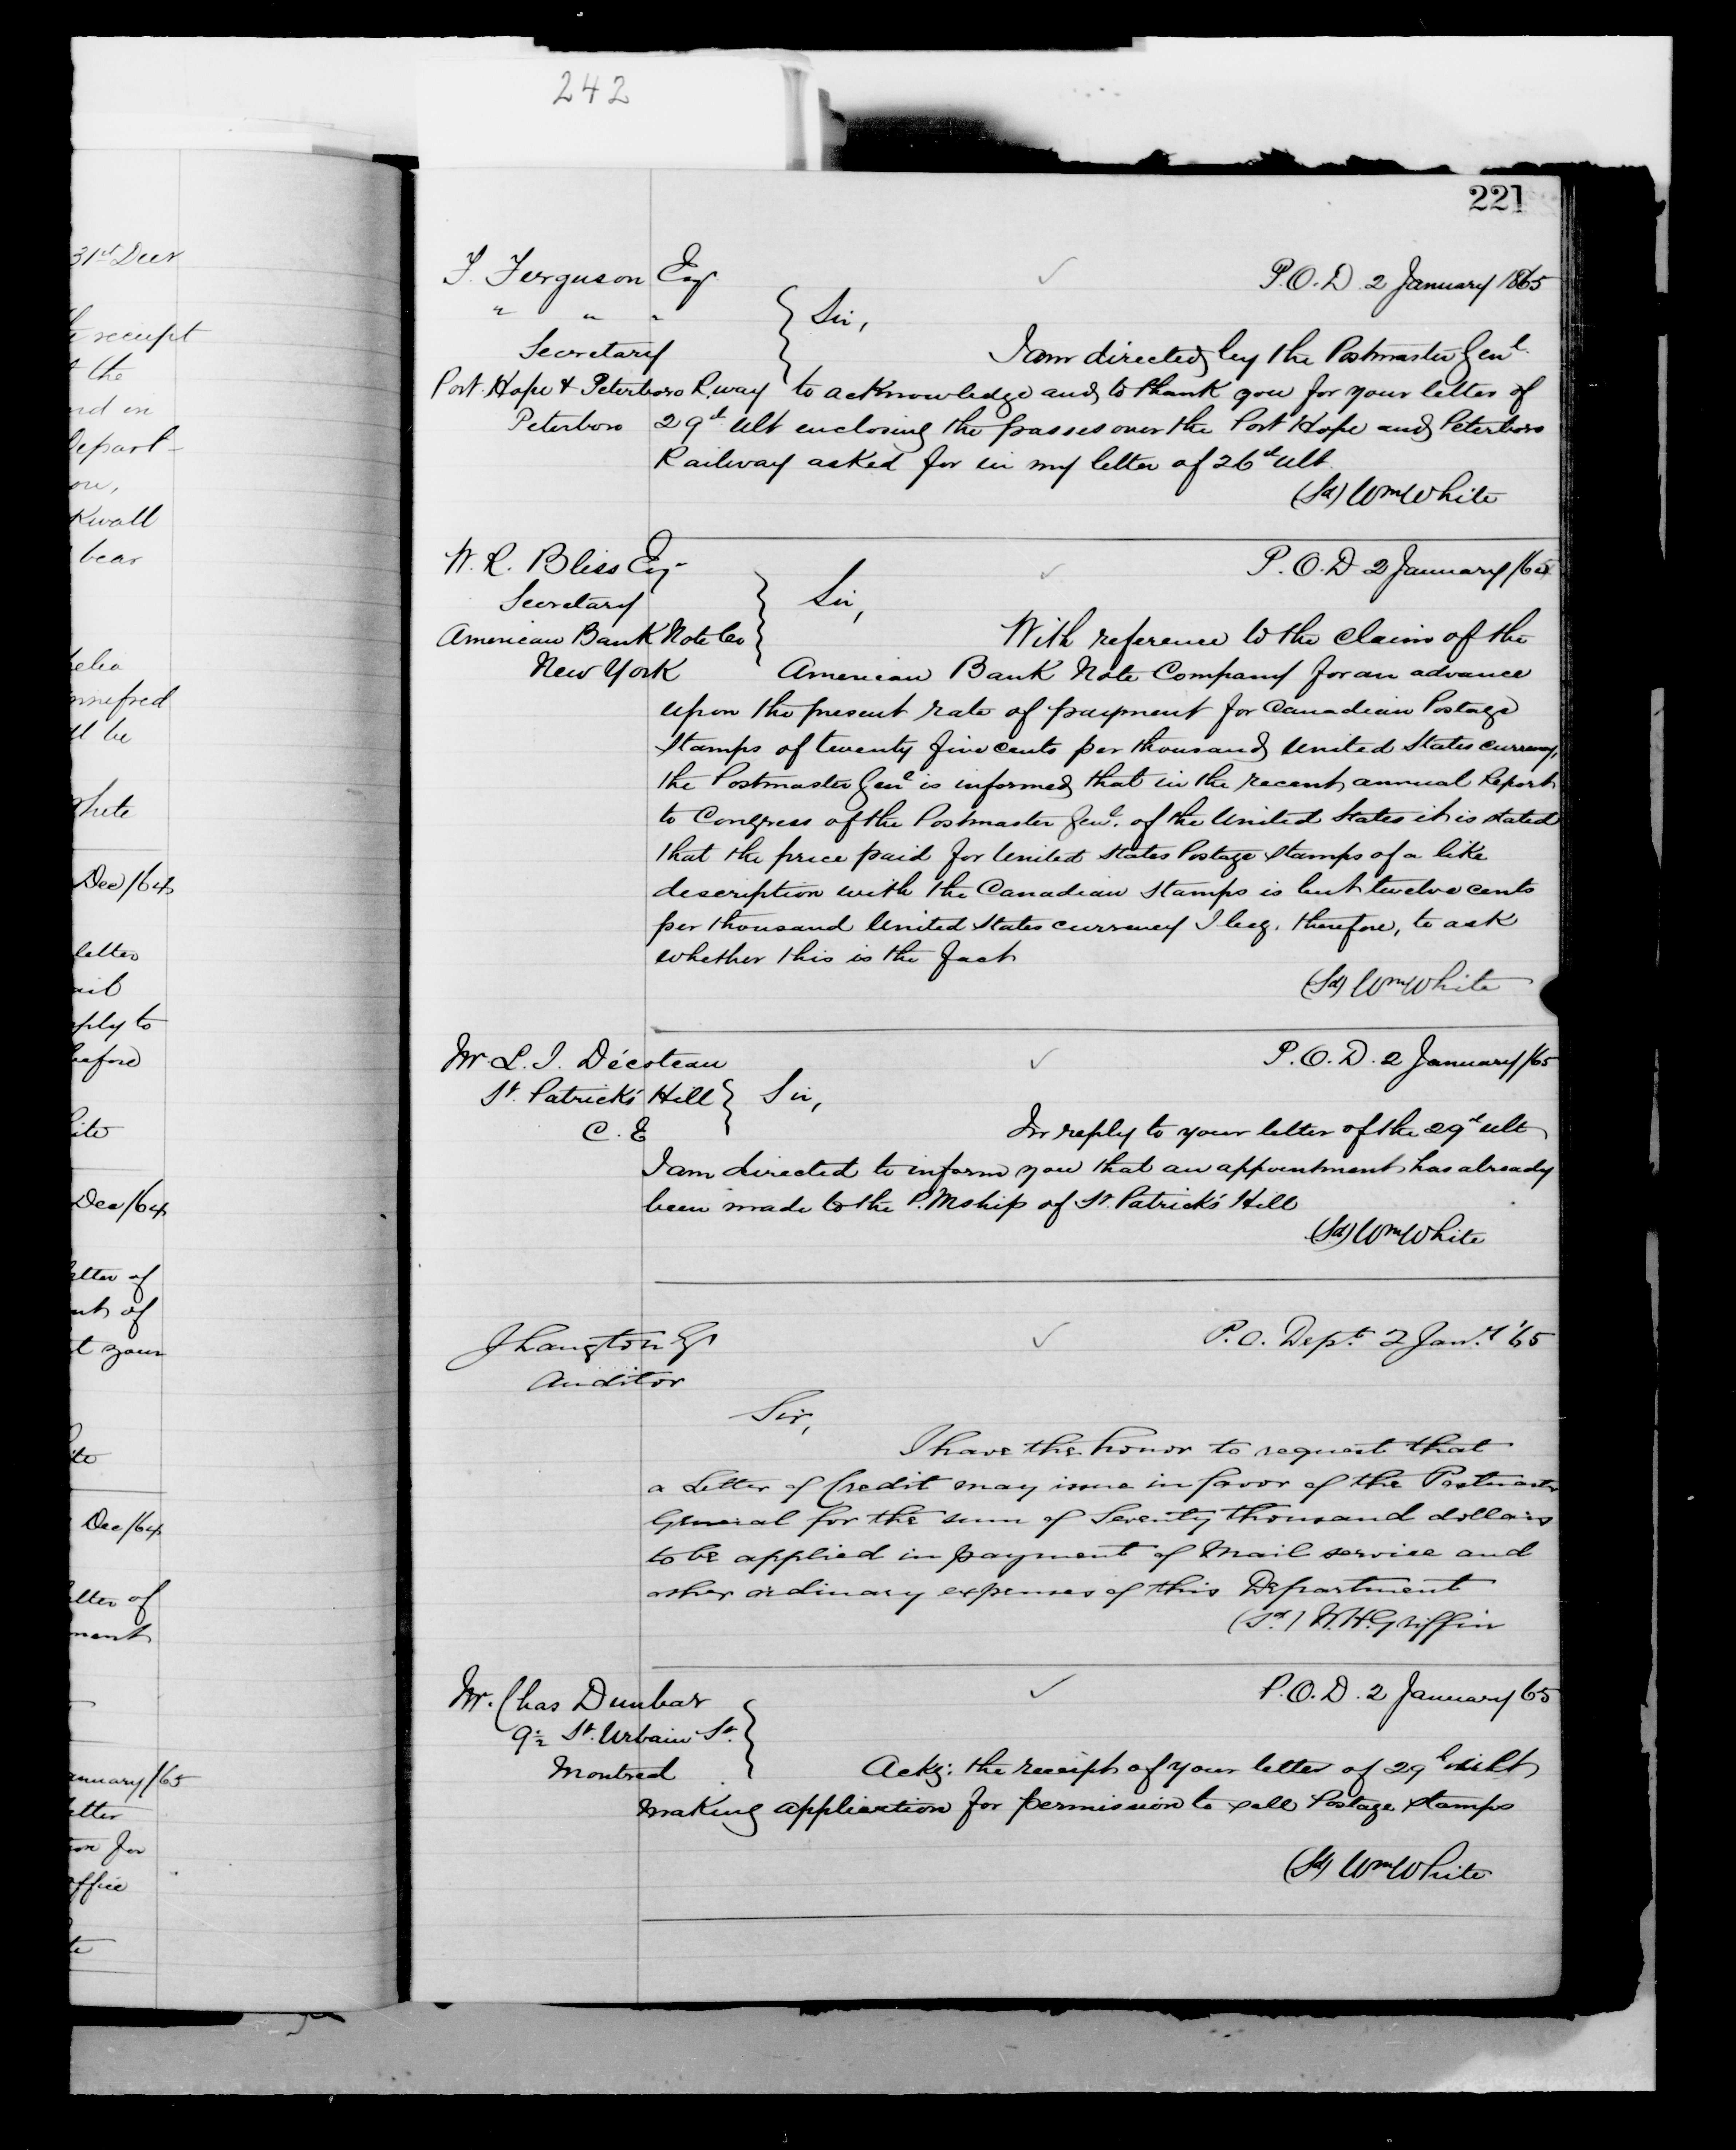 242
221
31st Decr
receipt
the
nd in
Depart-
ou,
Kwall
bear
nnifred
ll be
White
Dec/64
letter
ply to
before
ite
Dec/64
etter of
nt of
t your
ite
Dec/64
etter of
ment
anuary/65
etter
on for
ffice
te
T. Ferguson Esq.
P.O.D. 2 January 1865
" " "
Sir,
Secretary
I am directed by the Postmaster Genl.
Port Hope & Peterboro R.way
to acknowledge and to thank you for your letter of
Peterboro
29th ult enclosing the passes over the Port Hope and Peterboro
Railway asked for in my letter of 26th ult.
(Sd) Wm White
W. R. Bliss Esq
P.O.D 2 January/65
Secretary
Sir,
American Bank Note Co
With reference to the claim of the
New York
American Bank Note Company for an advance
upon the present rate of payment for Canadian Postage
Stamps of twenty five cents per thousand United States currency,
the Postmaster Genl is informed that in the recent annual Report
to Congress of the Postmaster Genl. of the United States it is stated
that the price paid for United States Postage Stamps of a like
description with the Canadian Stamps is but twelve cents
per thousand United States currency I beg, therefore, to ask
whether this is the fact
(Sd) Wm White
Mr. L. I. Décoteau
P.O.D. 2 January/65
St. Patrick's Hill
Sir,
C. E
In reply to your letter of the 29th ult
I am directed to inform you that an appointment has already
been made to the P.Mship of St. Patrick's Hill
(Sd) Wm White
J Langton Esq
P.O. Dept. 2 Jany '65
Auditor
Sir,
I have the honor to request that
a Letter of Credit may issue in favor of the Postmaster
General for the sum of Seventy thousand dollars
to be applied in payment of Mail service and
other ordinary expenses of this Department
(Sd.) W.H. Griffin
Mr. Chas Dunbar
P.O.D. 2 January 65
9½ St. Urbain St.
Montreal
Ackg: the receipt of your letter of 29th ult
making application for permission to sell Postage Stamps
(Sd) Wm White